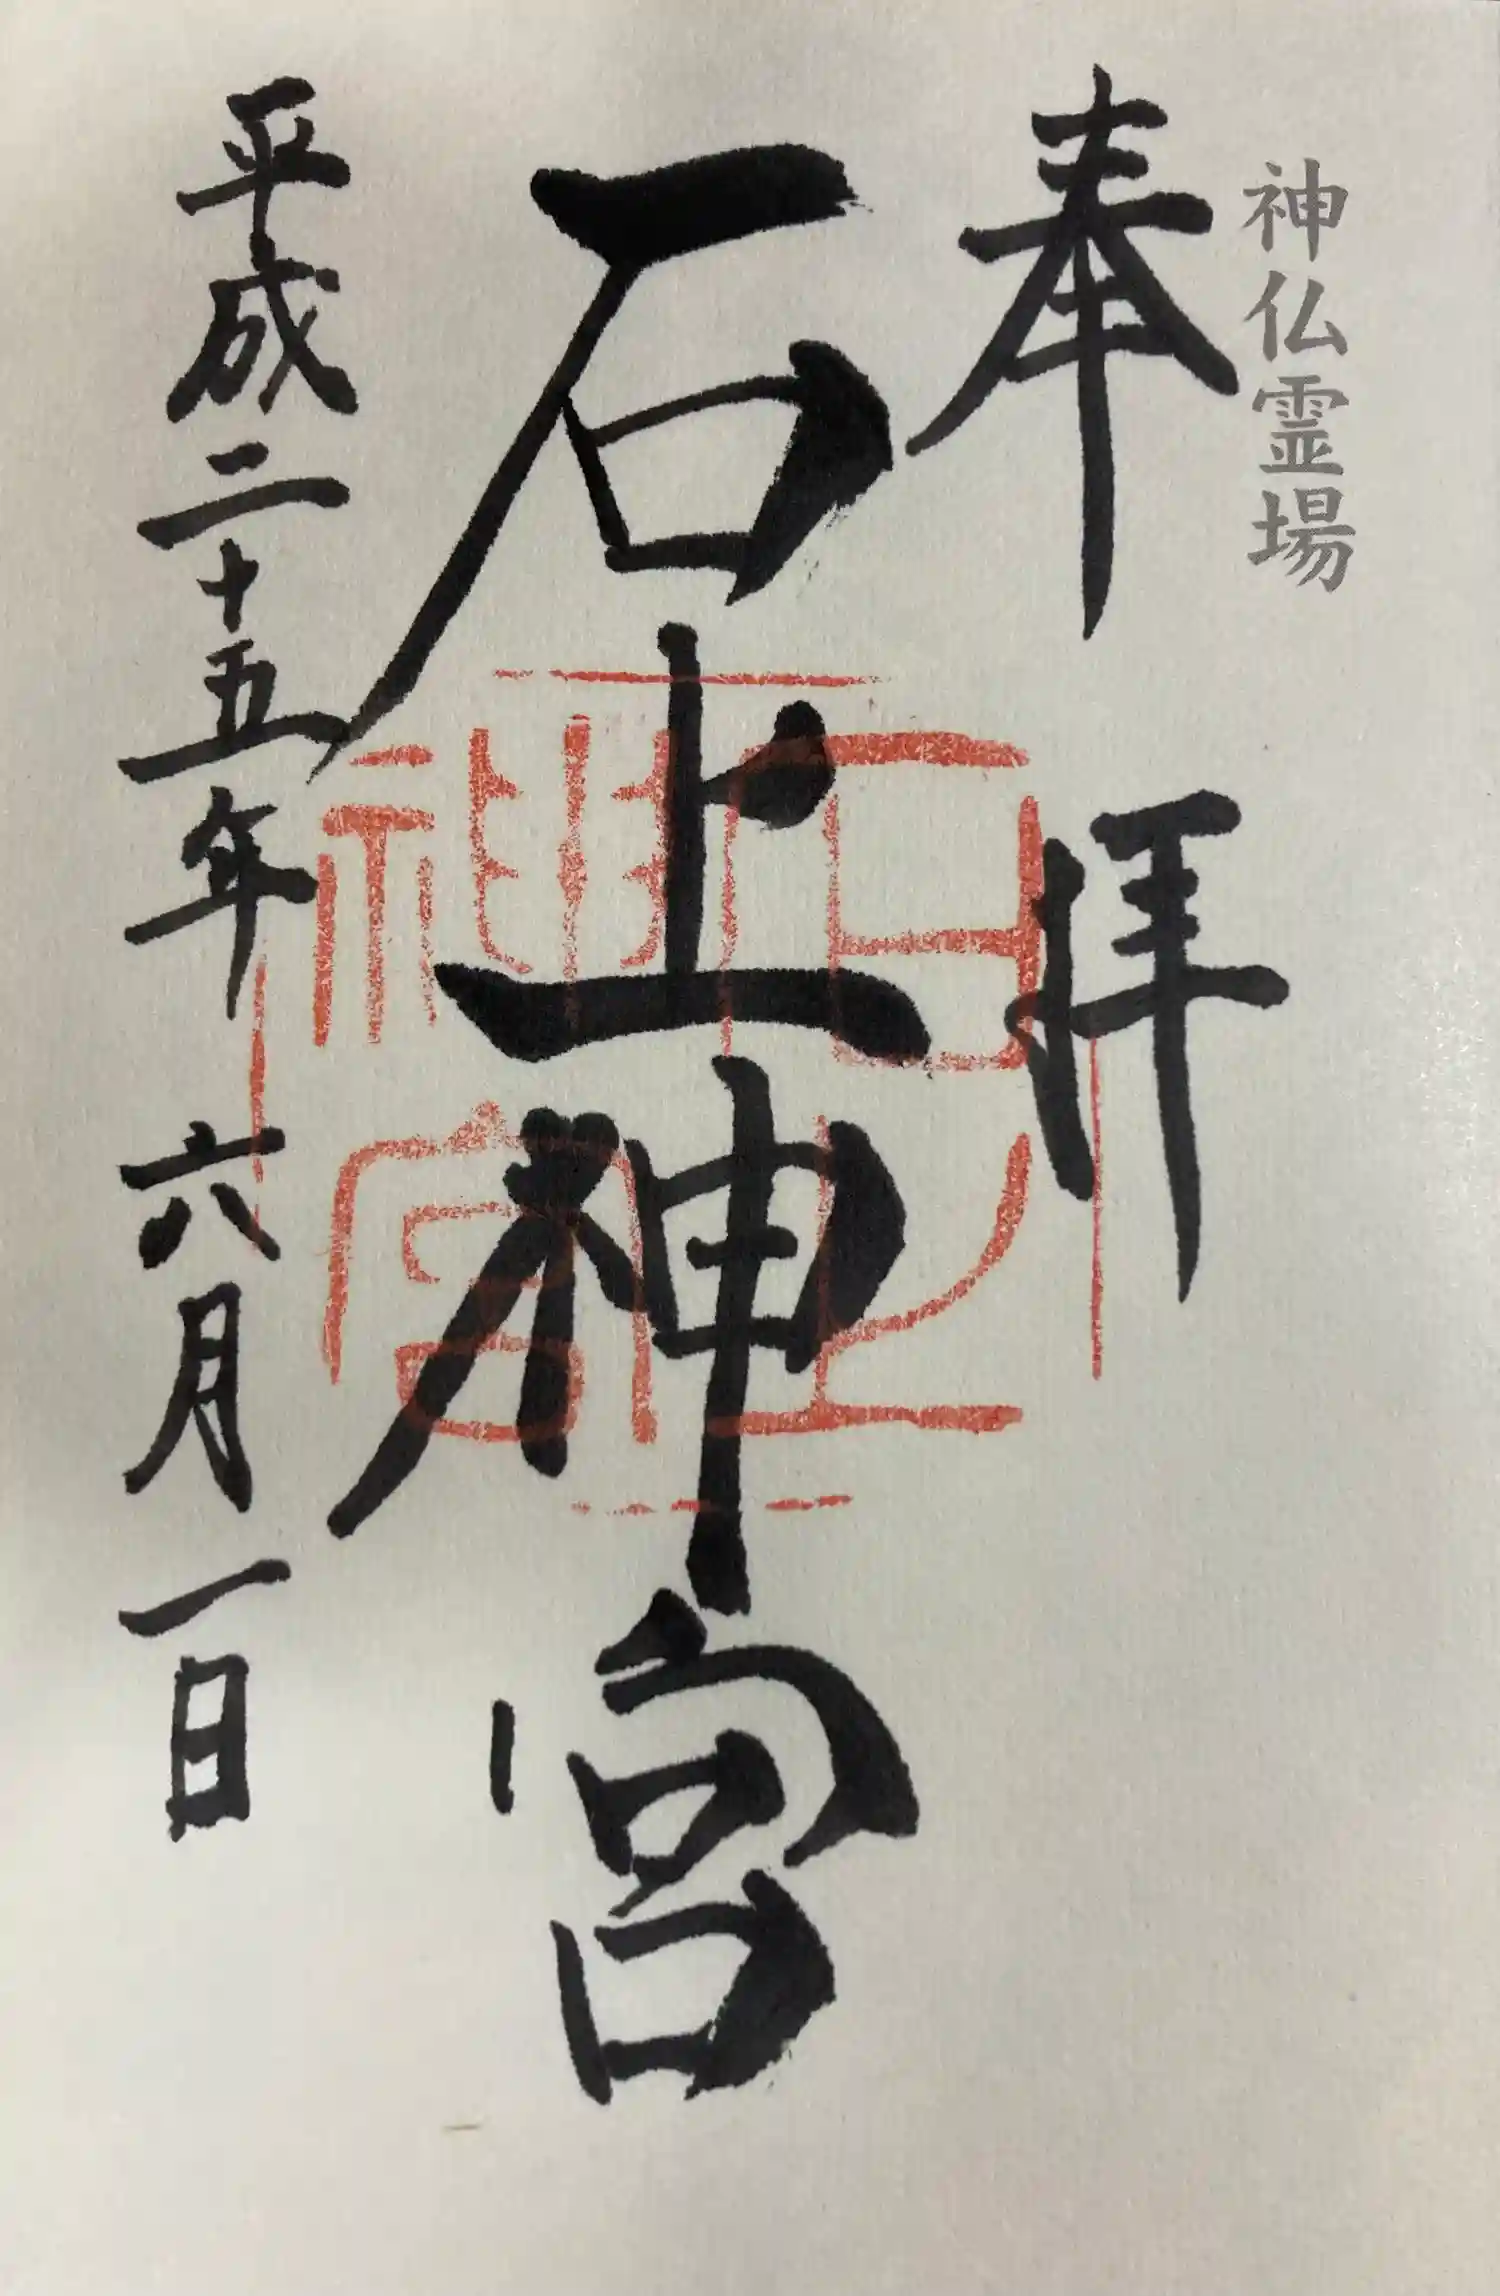 神仏霊場
奉拝
石上神宮
平成二十五年 六月 一日
石上神宮